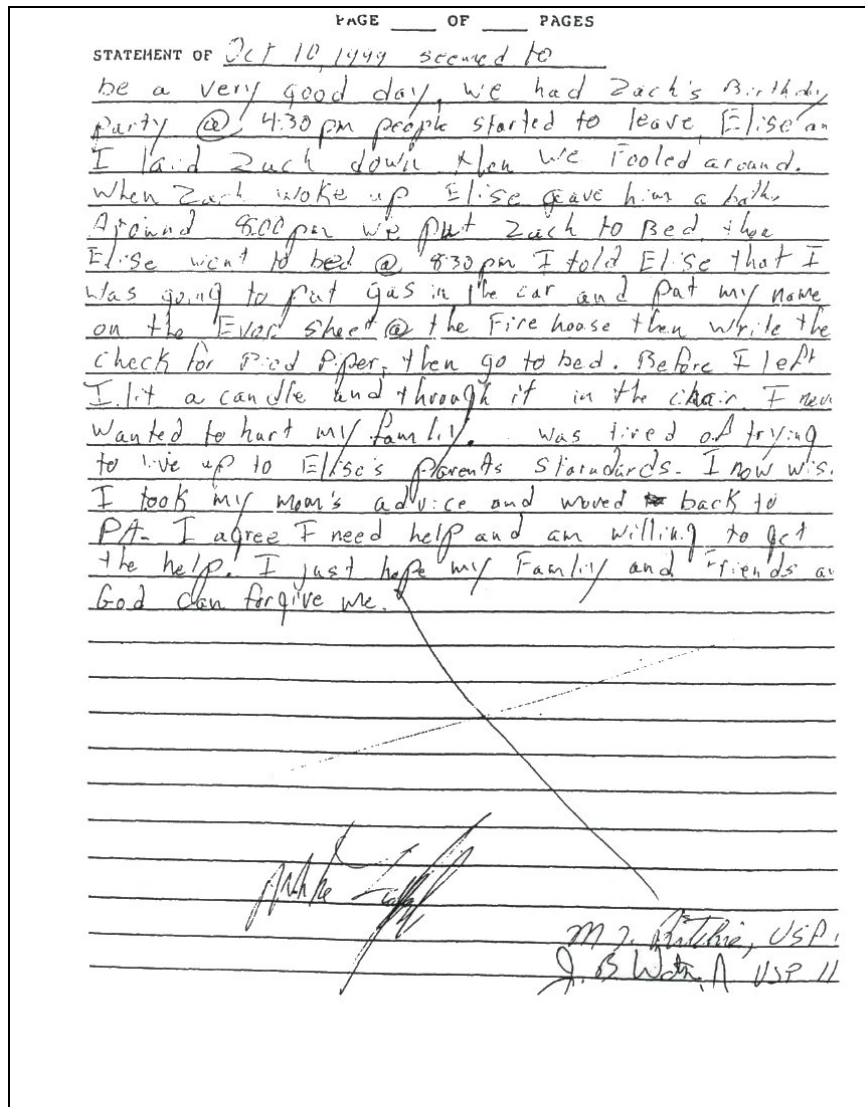 PAGE ____ OF ____ PAGES
STATEMENT OF Oct 10, 1999 seemed to
be a very good day, we had Zach's Birthday
Party @ 4:30 pm people started to leave, Elise an
I laid Zach down then we Fooled around.
When Zach woke up Elise geave him a bath.
Around 8:00 pm we put Zach to Bed, then
Elise went to bed @ 8:30 pm I told Elise that I
was going to put gas in the car and put my name
on the Evoc sheet @ the Fire house then write the
check for Pied Piper, then go to bed. Before I left
I lit a candle and through it in the chair. I neve
wanted to hurt my familiy. was tired of trying
to live up to Elise's parents starndards. I now wis
I took my mom's advice and moved back to
PA- I agree I need help and am willing to get
the help. I just hope my Familiy and Friends a
God can forgive me.
M J. Ritchie, USP
J. B USP 11